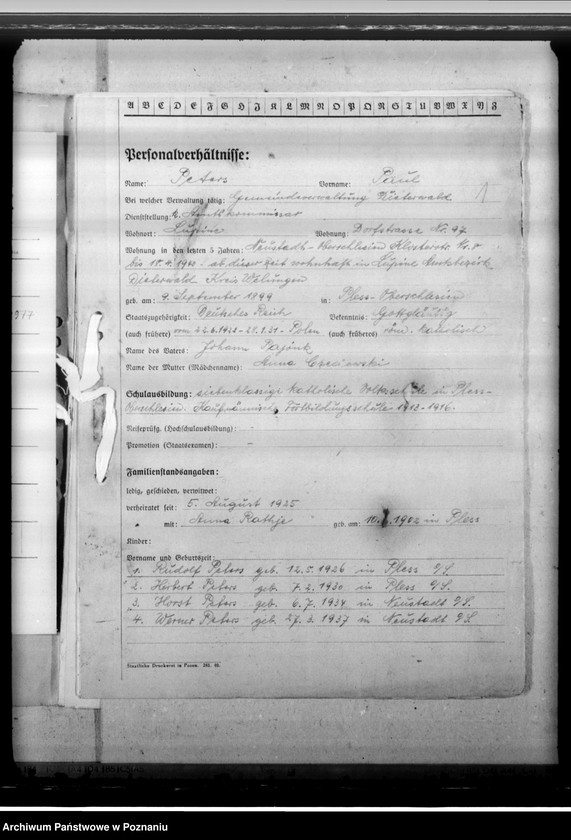 A B C D E F G H J K L M N O P Q R S T U V W X Y Z
Personalverhältnisse:
Name: Peters Vorname: Paul
Bei welcher Verwaltung tätig: Gemeindeverwaltung Dieterwald
Dienststellung: Amtskommissar
Wohnort: Lupine Wohnung: Dorfstrasse No. 47
Wohnung in den letzten 5 Jahren: Neustadt - Oberschlesien
bis ab dieser Zeit wohnhaft in Lupine Amtsbezirk
Dieterwald Kreis Welungen
geb. am: 9. September 1899 in: Pless - Oberschlesien
Staatszugehörigkeit: Deutsches Reich Bekenntnis: Gottgläubig
(auch frühere) vom Polen (auch frühere) röm. katolisch
Name des Vaters: Johann
Name der Mutter (Mädchenname): Anna
Schulausbildung: siebenklassige katolische Volksschule in Pless-
Oberschlesien. Kaufmännische Fortbildungsschule 1913-1916.
Reifeprüfg. (Hochschulausbildung): -
Promotion (Staatsexamen): -
Familienstandsangaben:
ledig, geschieden, verwitwet:
verheiratet seit: 5. August 1925
mit: Anna Rathje geb. am: 1902 in Pless
Kinder:
Vorname und Geburtszeit:
1. Rudolf Peters geb. 12.5.1926 in Pless O/S.
2. Herbert Peters geb. 7.2.1930 in Pless O/S.
3. Horst Peters geb. 6.7.1934 in Neustadt O/S.
4. Werner Peters geb. 27.3.1937 in Neustadt O/S.
Staatliche Druckerei in Posen.
Archiwum Państwowe w Poznaniu